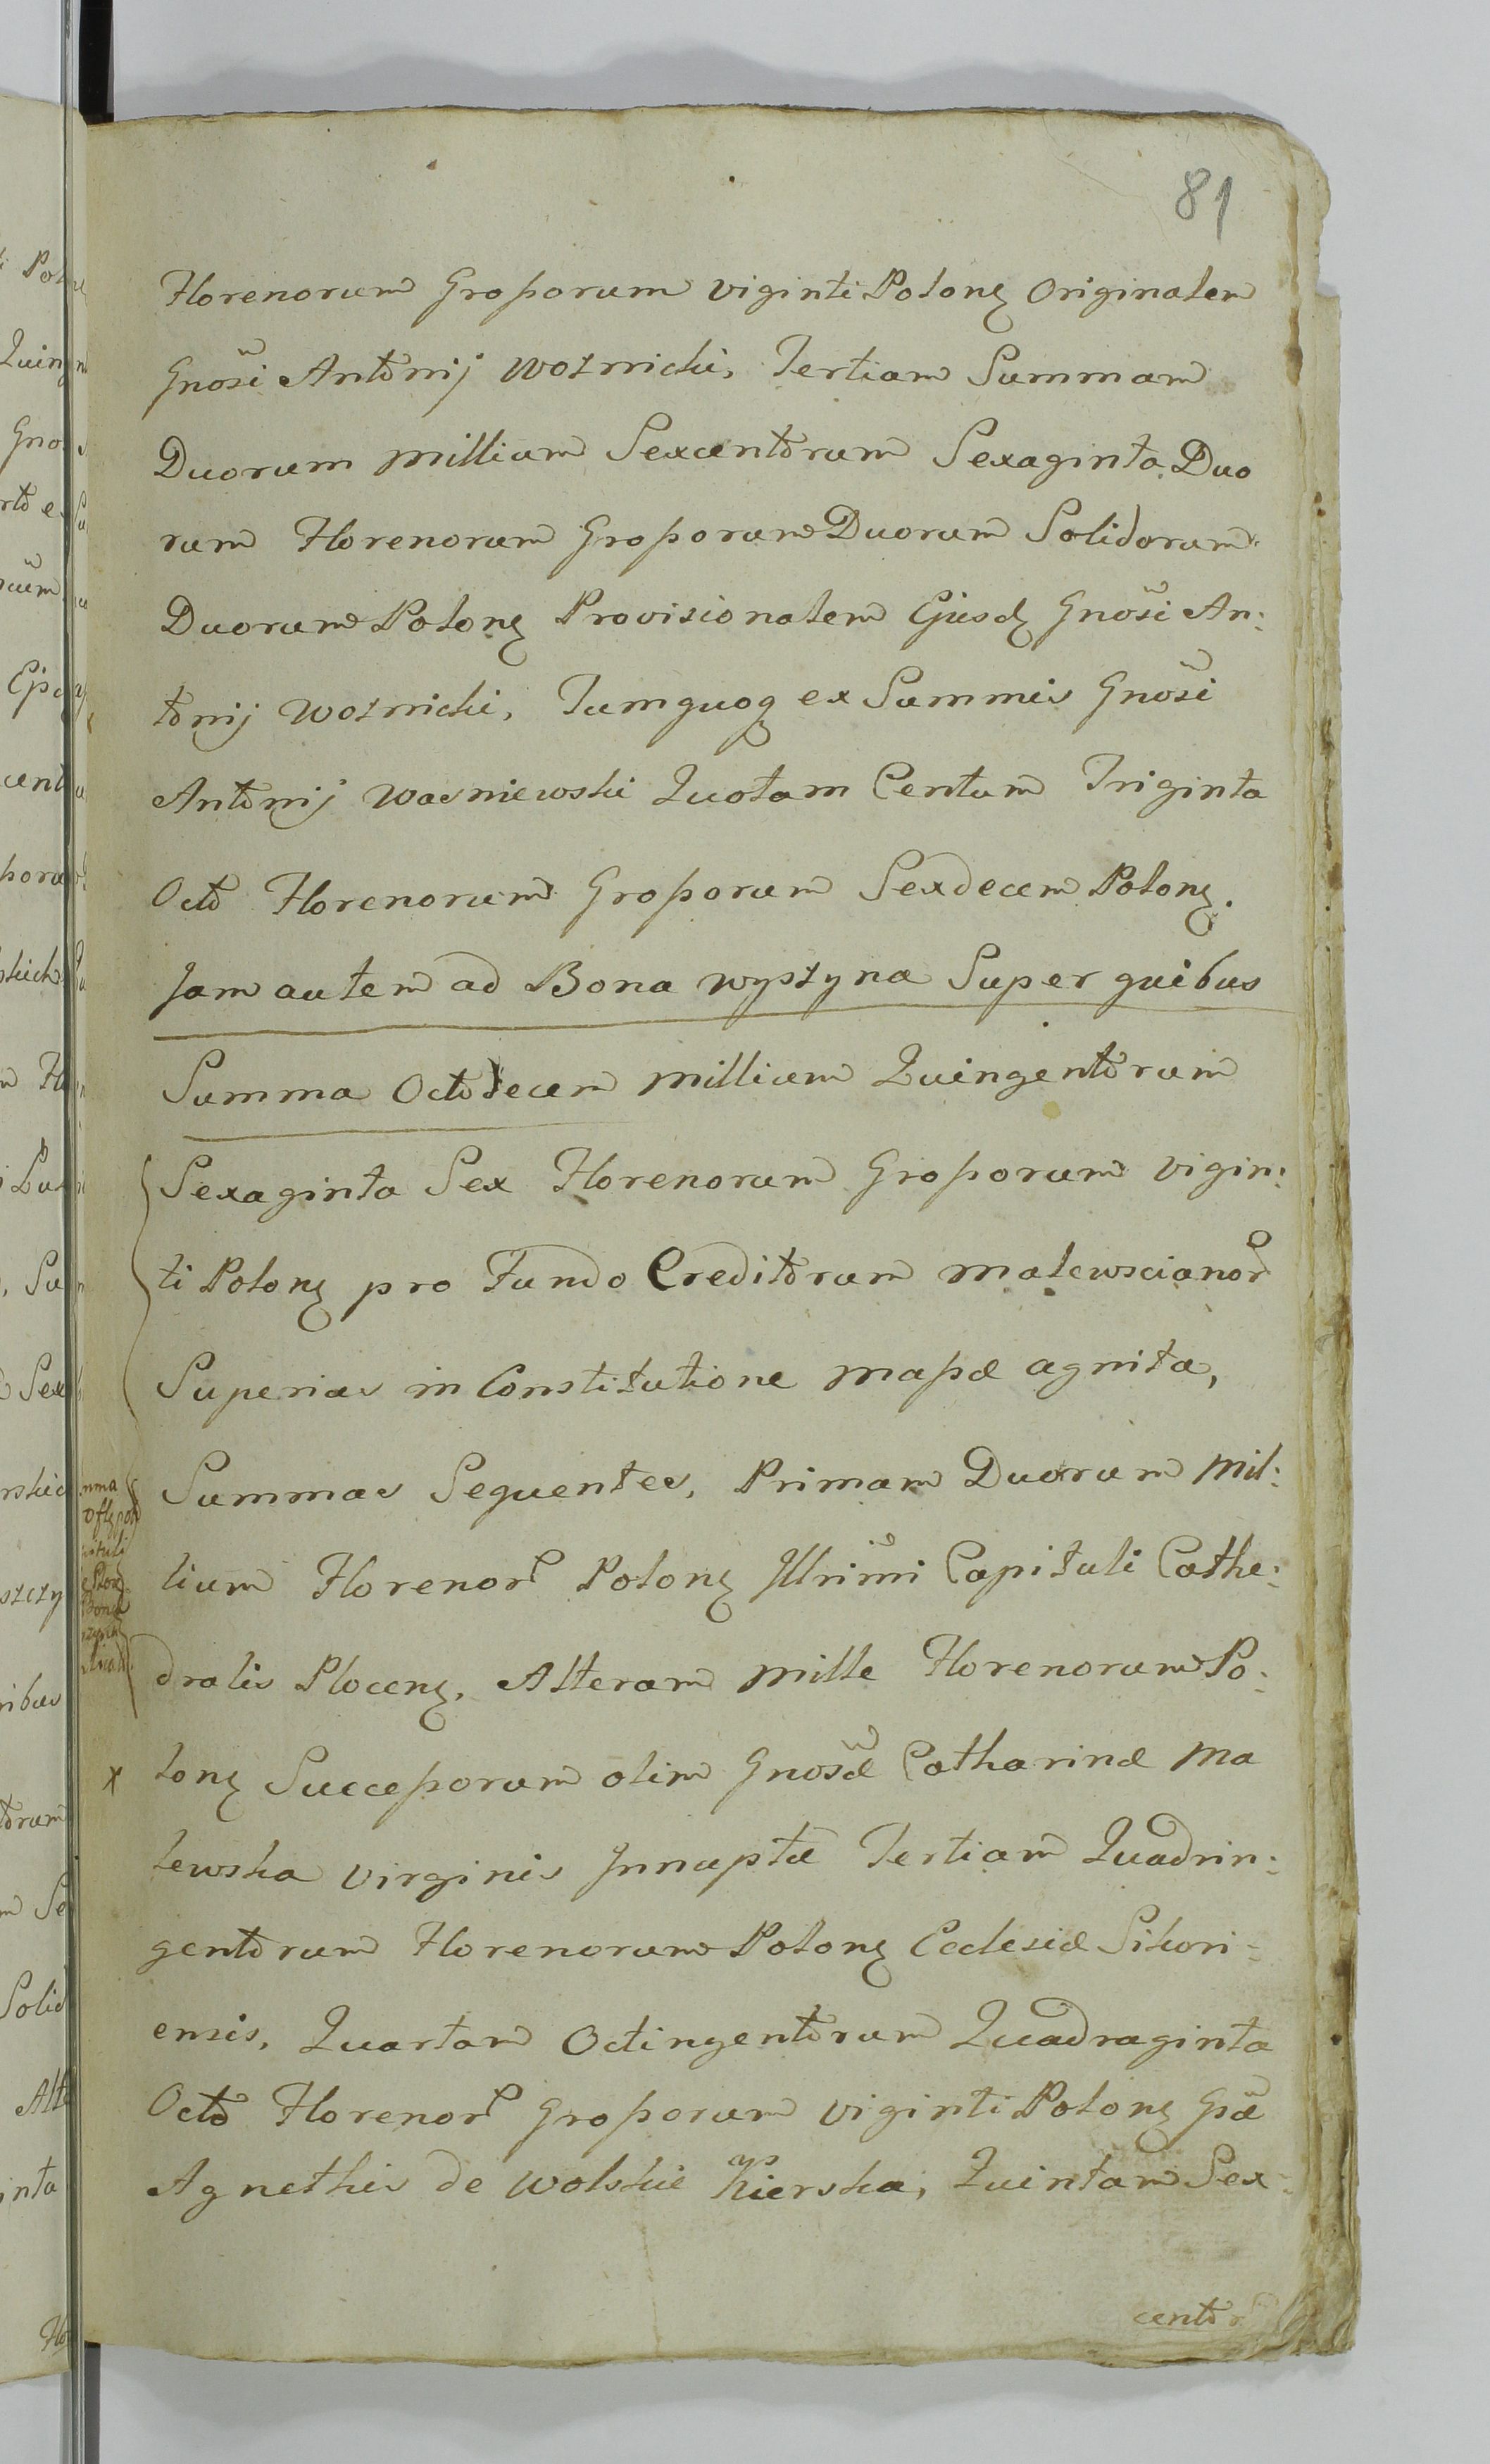 81
Florenorum Grossorum viginti Polon: Originalem
Gnosi Antonij Woznicki, Tertiam Summam
Duorum Millium Sexcentorum Sexaginta Duo
rum Florenorum Grossorum Duorum Solidorum
Duorum Polon: Provisionalem Ejusd: Gnosi An:
tonij Woznicki, Tumquoq ex Summis Gnosi
Antonij Wasniewski Quotam Centum Triginta
Octo Florenorum Grossorum Sexdecem Polon:.
Jam autem ad Bona Wyszyna Super quibus
Summa Octodecem Millium Quingentorum
Sexaginta Sex Florenorum Grossorum Vigin:
ti Polon: pro Fundo Creditorum Malewscianor
Superius in Constitutione Massæ agnita,
Summas Sequentes, Primam Duorum Mil:
lium Florenor Polon: Illrimi Capituli Cathe:
dralis Plocen:, Alteram Mille Florenorum Po:
x lon: Successorum olim Gnosæ Catharinæ Ma
lewska Virginis Innuptæ Tertiam Quadrin:
gentorum Florenorum Polon: Ecclesiæ Sikori:
ensis, Quartam Octingentorum Quadraginta
Octo Florenor Grossorum viginti Polon: Gsæ
Agnethis de Wolskie Kierska, Quintam Sex:
centor